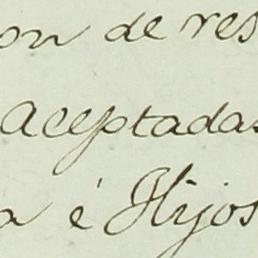 on de res
aceptadas
a é Hijos